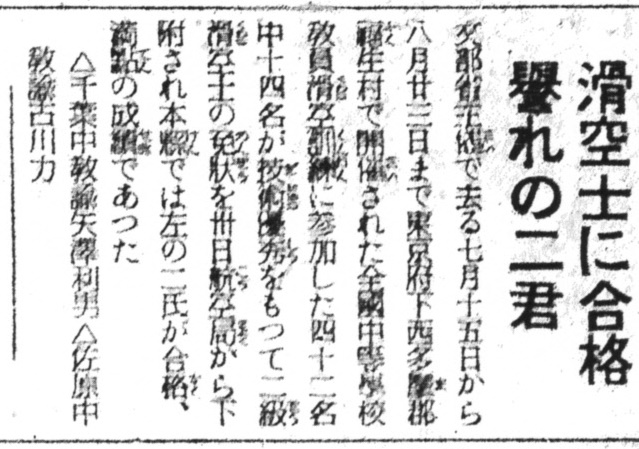 滑空士に合格
譽れの二君
文部省主催で去る七月十五日から
八月廿三日まで東京府下西多摩郡
福生村で開催された全國中等學校
敎員滑空訓練に参加した四十二名
中十四名が技術優秀をもつて二級
滑空士の免狀を卅日航空局から下
附され本縣では左の二氏が合格、
満點の成績であつた
△千葉中敎諭矢澤利男△佐原中
敎諭古川力